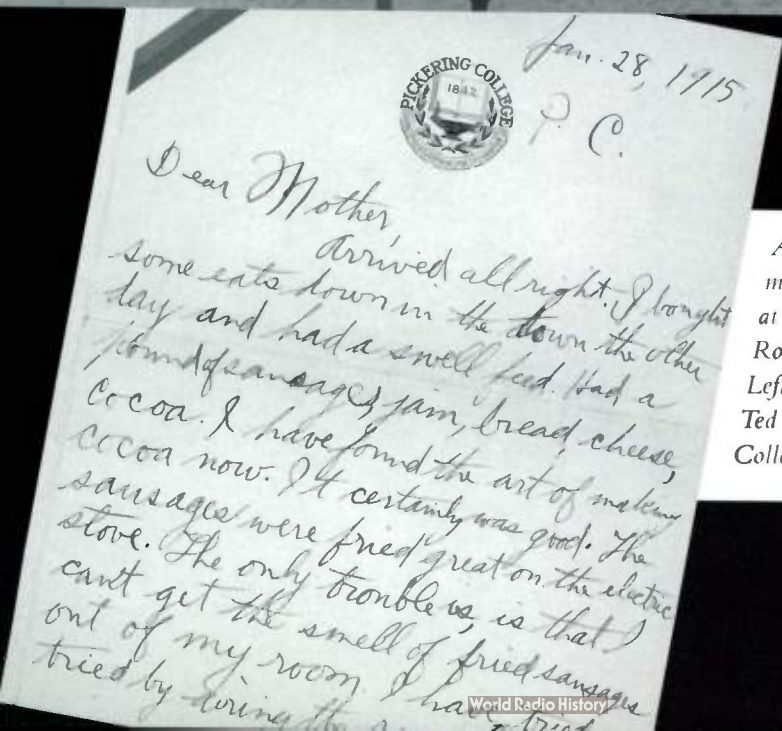 Jan. 28, 1915
PICKERING COLLEGE
1842
P. C.
Dear Mother,
Arrived all right. I bought
some eats down in the town the other
day and had a swell feed. Had a
pound of sausages, jam, bread, cheese,
cocoa. I have found the art of making
cocoa now. It certainly was good. The
sausages were fried great on the electric
stove. The only trouble is, is that I
can't get the smell of fried sausages
out of my room. I have tried
tried by the
A
m
at
Ro
Left
Ted
Colle
World Radio History